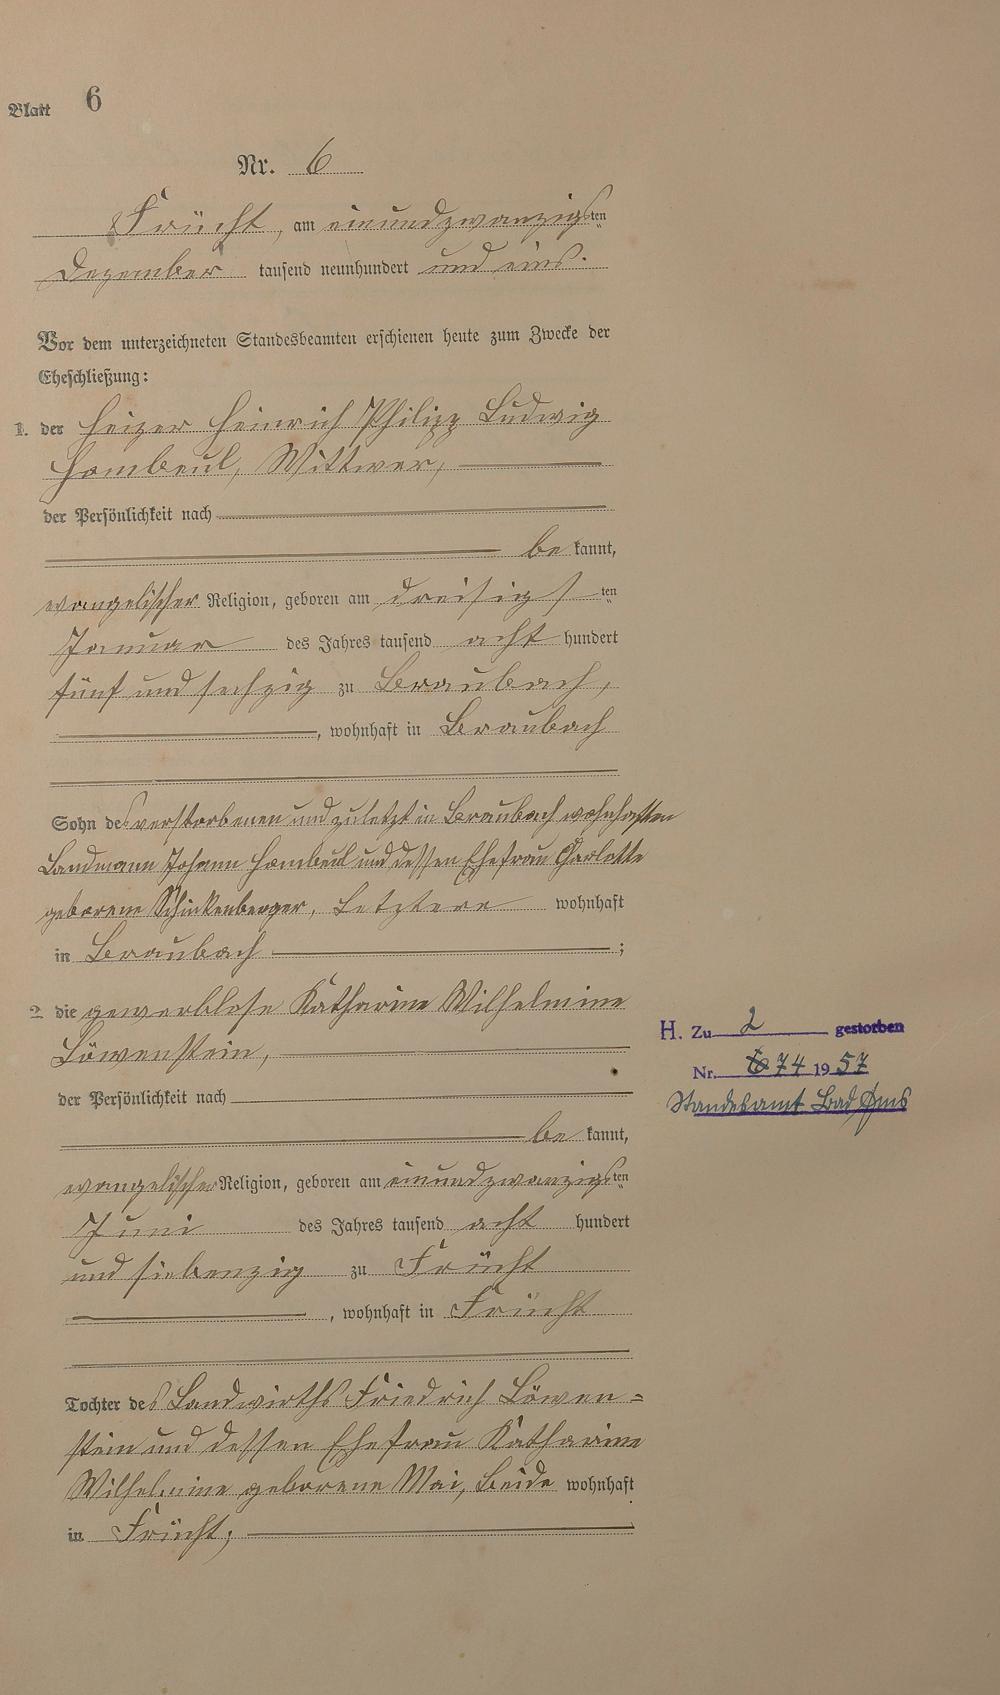 Blatt 6
Nr. 6
Frücht, am einundzwanzigsten
Dezember tausend neunhundert und eins.
Vor dem unterzeichneten Standesbeamten erschienen heute zum Zwecke der
Eheschließung:
1. der Heizer Heinrich Philipp Ludwig
Hombeul, Wittwer,
der Persönlichkeit nach
be kannt,
evangelischer Religion, geboren am dreisigsten
Januar des Jahres tausend acht hundert
fünf und sechzig zu Braubach,
, wohnhaft in Braubach
Sohn des verstorbenen und zuletzt in Braubach wohnhaften
Landmann Johann Hombeul und dessen Ehefrau Charlotte
geborene Schinkenberger, Letztere wohnhaft
in Braubach ;
2. die gewerblose Katharine Wilhelmine
Löwenstein,
der Persönlichkeit nach
be kannt,
evangelischer Religion, geboren am einundzwanzigsten
Juni des Jahres tausend acht hundert
und siebenzig zu Frücht
, wohnhaft in Frücht
Tochter des Landwirths Friedrich Löwen=
stein und dessen Ehefrau Katharine
Wilhelmine geborene Mai, Beide wohnhaft
in Frücht;
H. Zu 2 gestorben
Nr. 74 1957
Standesamt Bad Ems